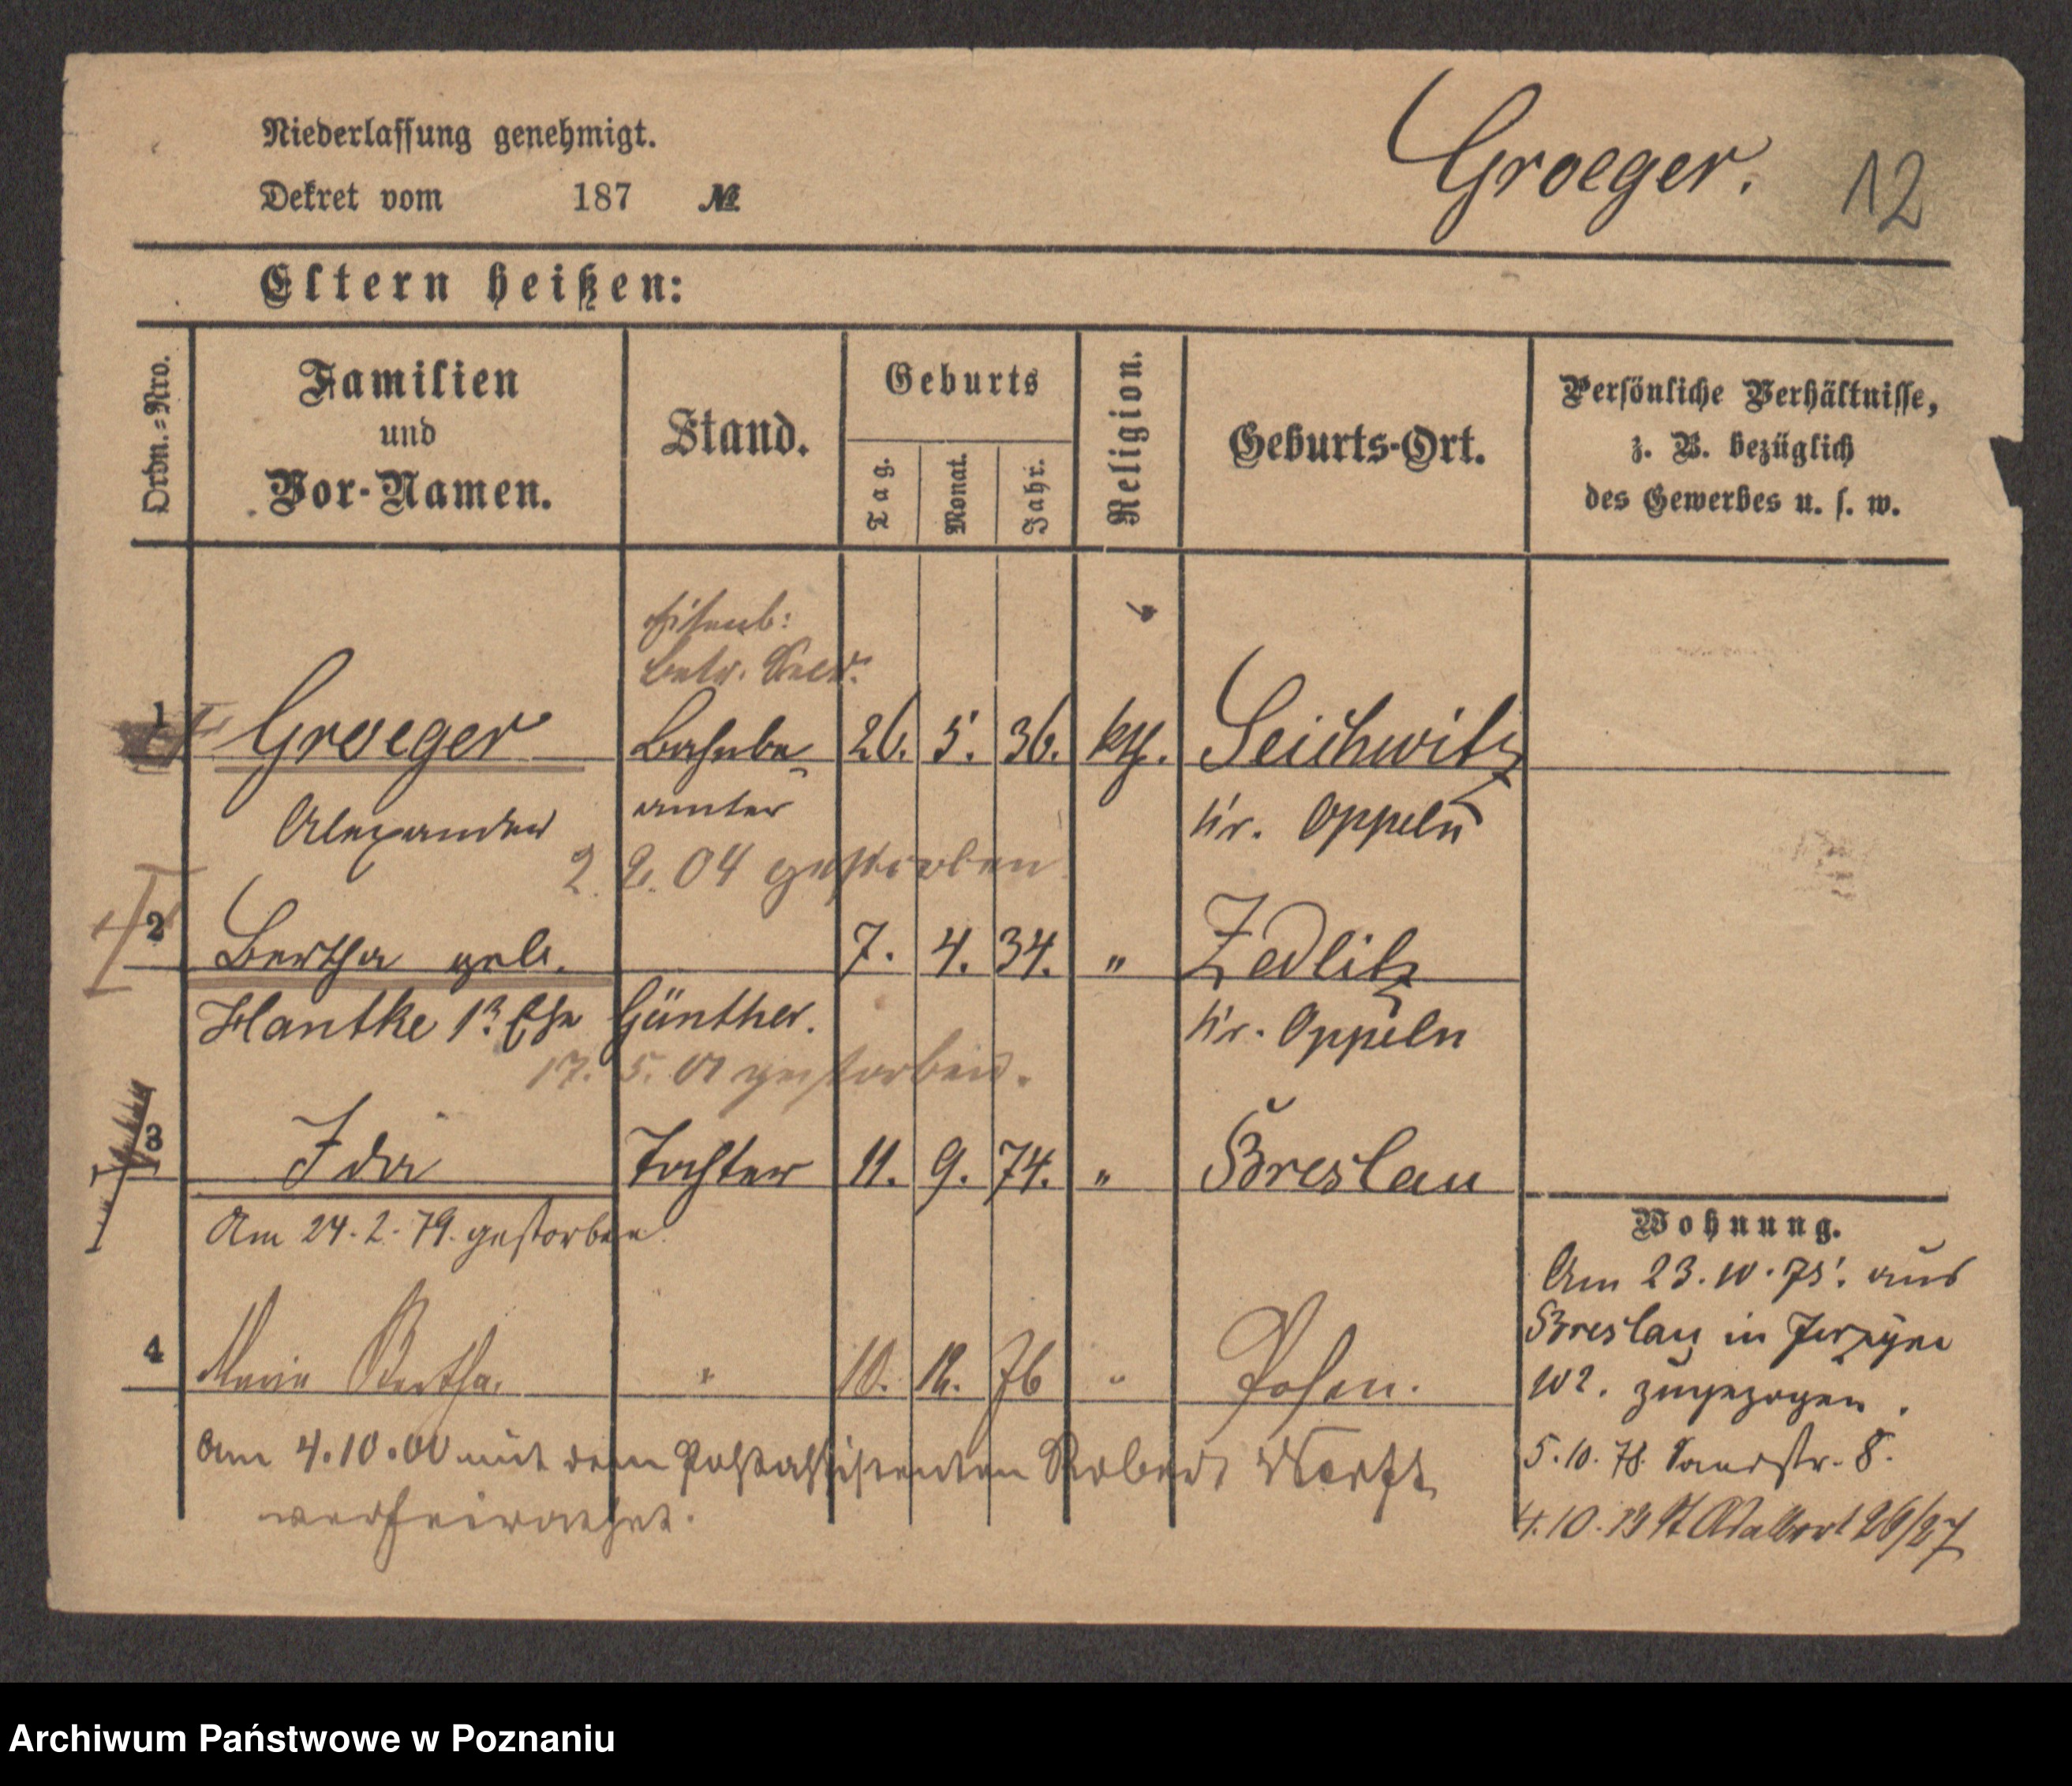 Niederlassung genehmigt.
Dekret vom 187 №
Groeger. 12
Eltern heißen:
Ordn.-Nro.
Familien
und
Vor-Namen.
Stand.
Geburts
Tag.
Monat.
Jahr.
Religion.
Geburts-Ort.
Persönliche Verhältnisse,
z. B. bezüglich
des Gewerbes u. s. w.
Eisenb:
Betr. Secr.
1 Groeger Bahnbe 26. 5. 36. kth. Seichwitz
Alexander amter Kr. Oppeln
2. 2. 04 gestorben
2 Bertha geb. 7. 4. 34. " Zedlitz
Hantke 1r Ehe Günther. Kr. Oppeln
17. 5. 01 gestorben.
3 Ida Tochter 11. 9. 74. " Breslau
Am 24. 2. 79. gestorben.
4 Maria Bertha. " 10. 12. 76 " Posen.
Am 4.10.00 mit dem Postassistenten Robert
verheirathet.
Wohnung.
Am 23.10.75. aus
Breslau in Jerzyce
102. zugezogen.
5.10.78. Sandstr. 8.
4.10.79 St Adalbert 26/27
Archiwum Państwowe w Poznaniu